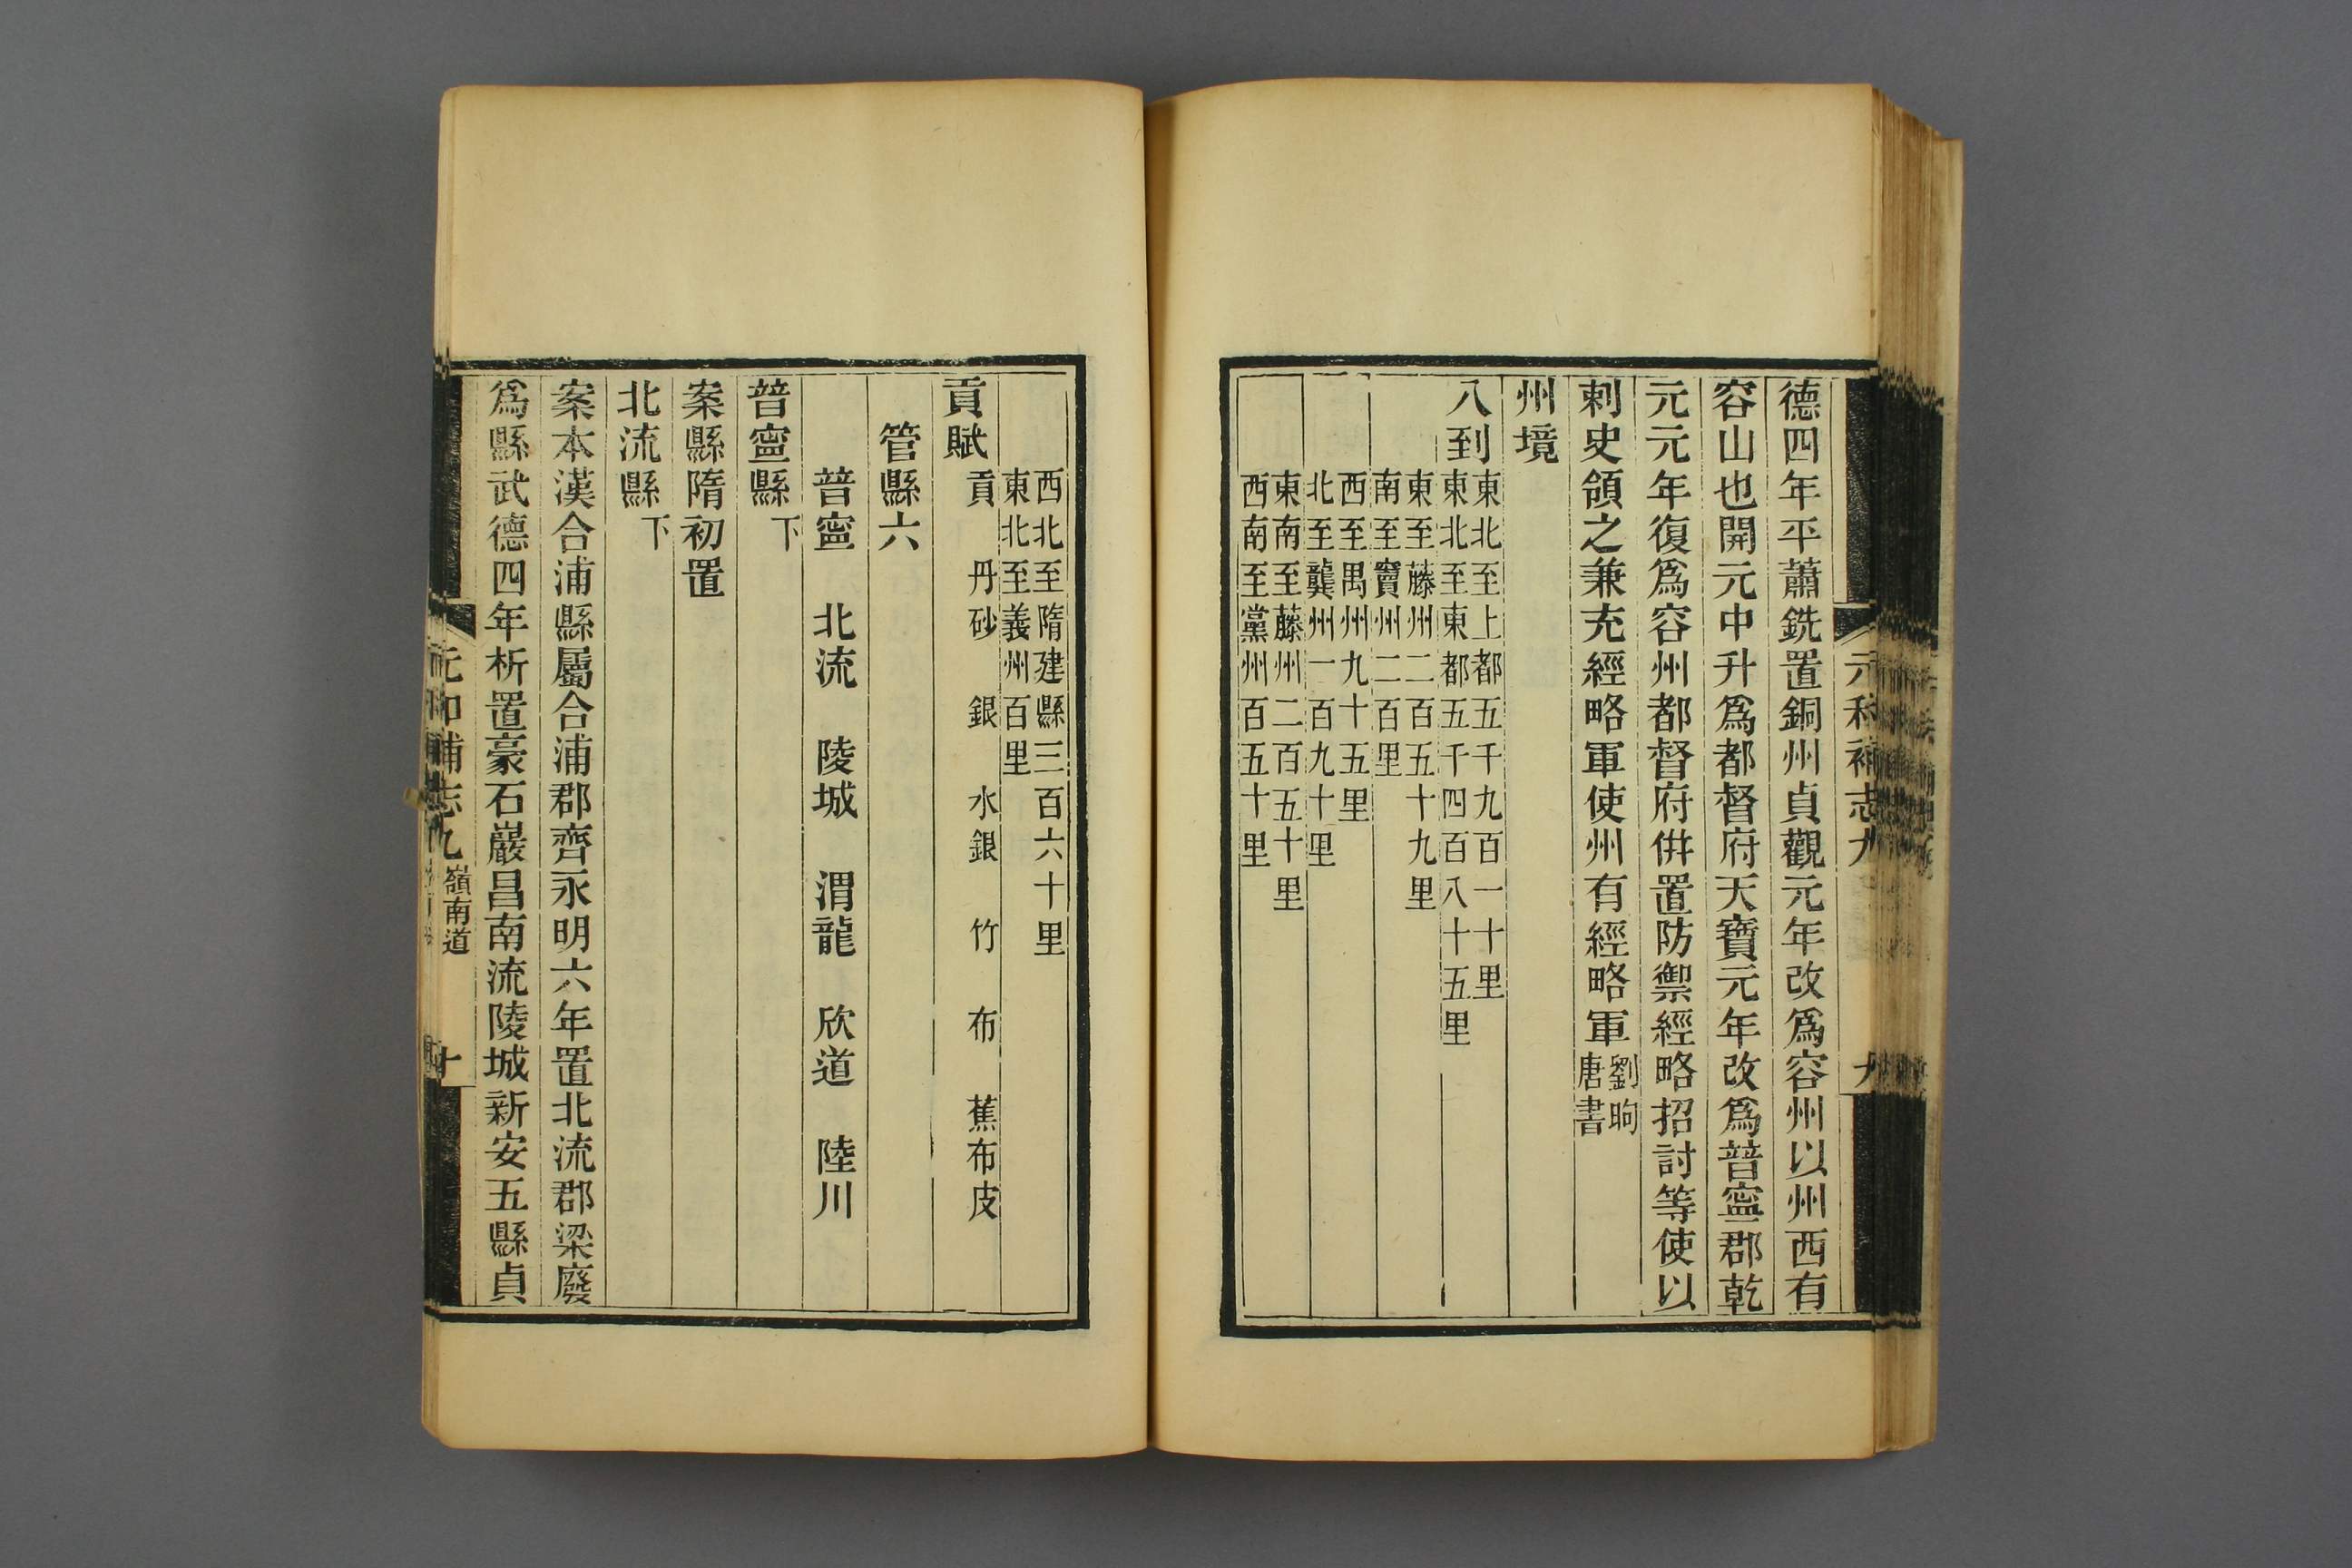 德四年平蕭銑置銅州貞觀元年改爲容州以州西有
容山也開元中升爲都督府天寶元年改爲普寧郡乾
元元年復爲容州都督府倂置防禦經略招討等使以
刺史領之兼充經略軍使州有經略軍劉昫
唐書
州境
八到東北至上都五千九百一十里
東北至東都五千四百八十五里
東至藤州二百五十九里
南至竇州二百里
西至禺州九十五里
北至龔州一百九十里
東南至藤州二百五十里
西南至黨州百五十里
西北至隋建縣三百六十里
東北至義州百里
貢賦 貢 丹砂 銀 水銀 竹 布 蕉布皮
管縣六
普寧 北流 陵城 渭龍 欣道 陸川
普寧縣下
案縣隋初置
北流縣下
案本漢合浦縣屬合浦郡齊永明六年置北流郡梁廢
爲縣武德四年析置豪石巖昌南流陵城新安五縣貞
元和補志九 嶺南道 十
元和補志九